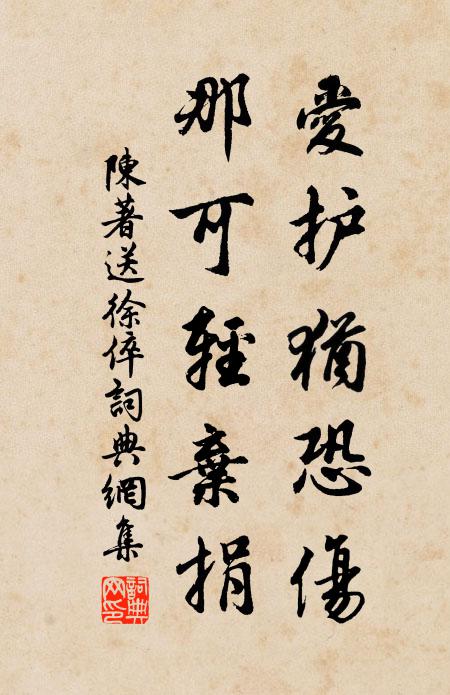 愛护猶恐傷
那可輕棄捐
陳著送徐倅詞典網集
詞典網印